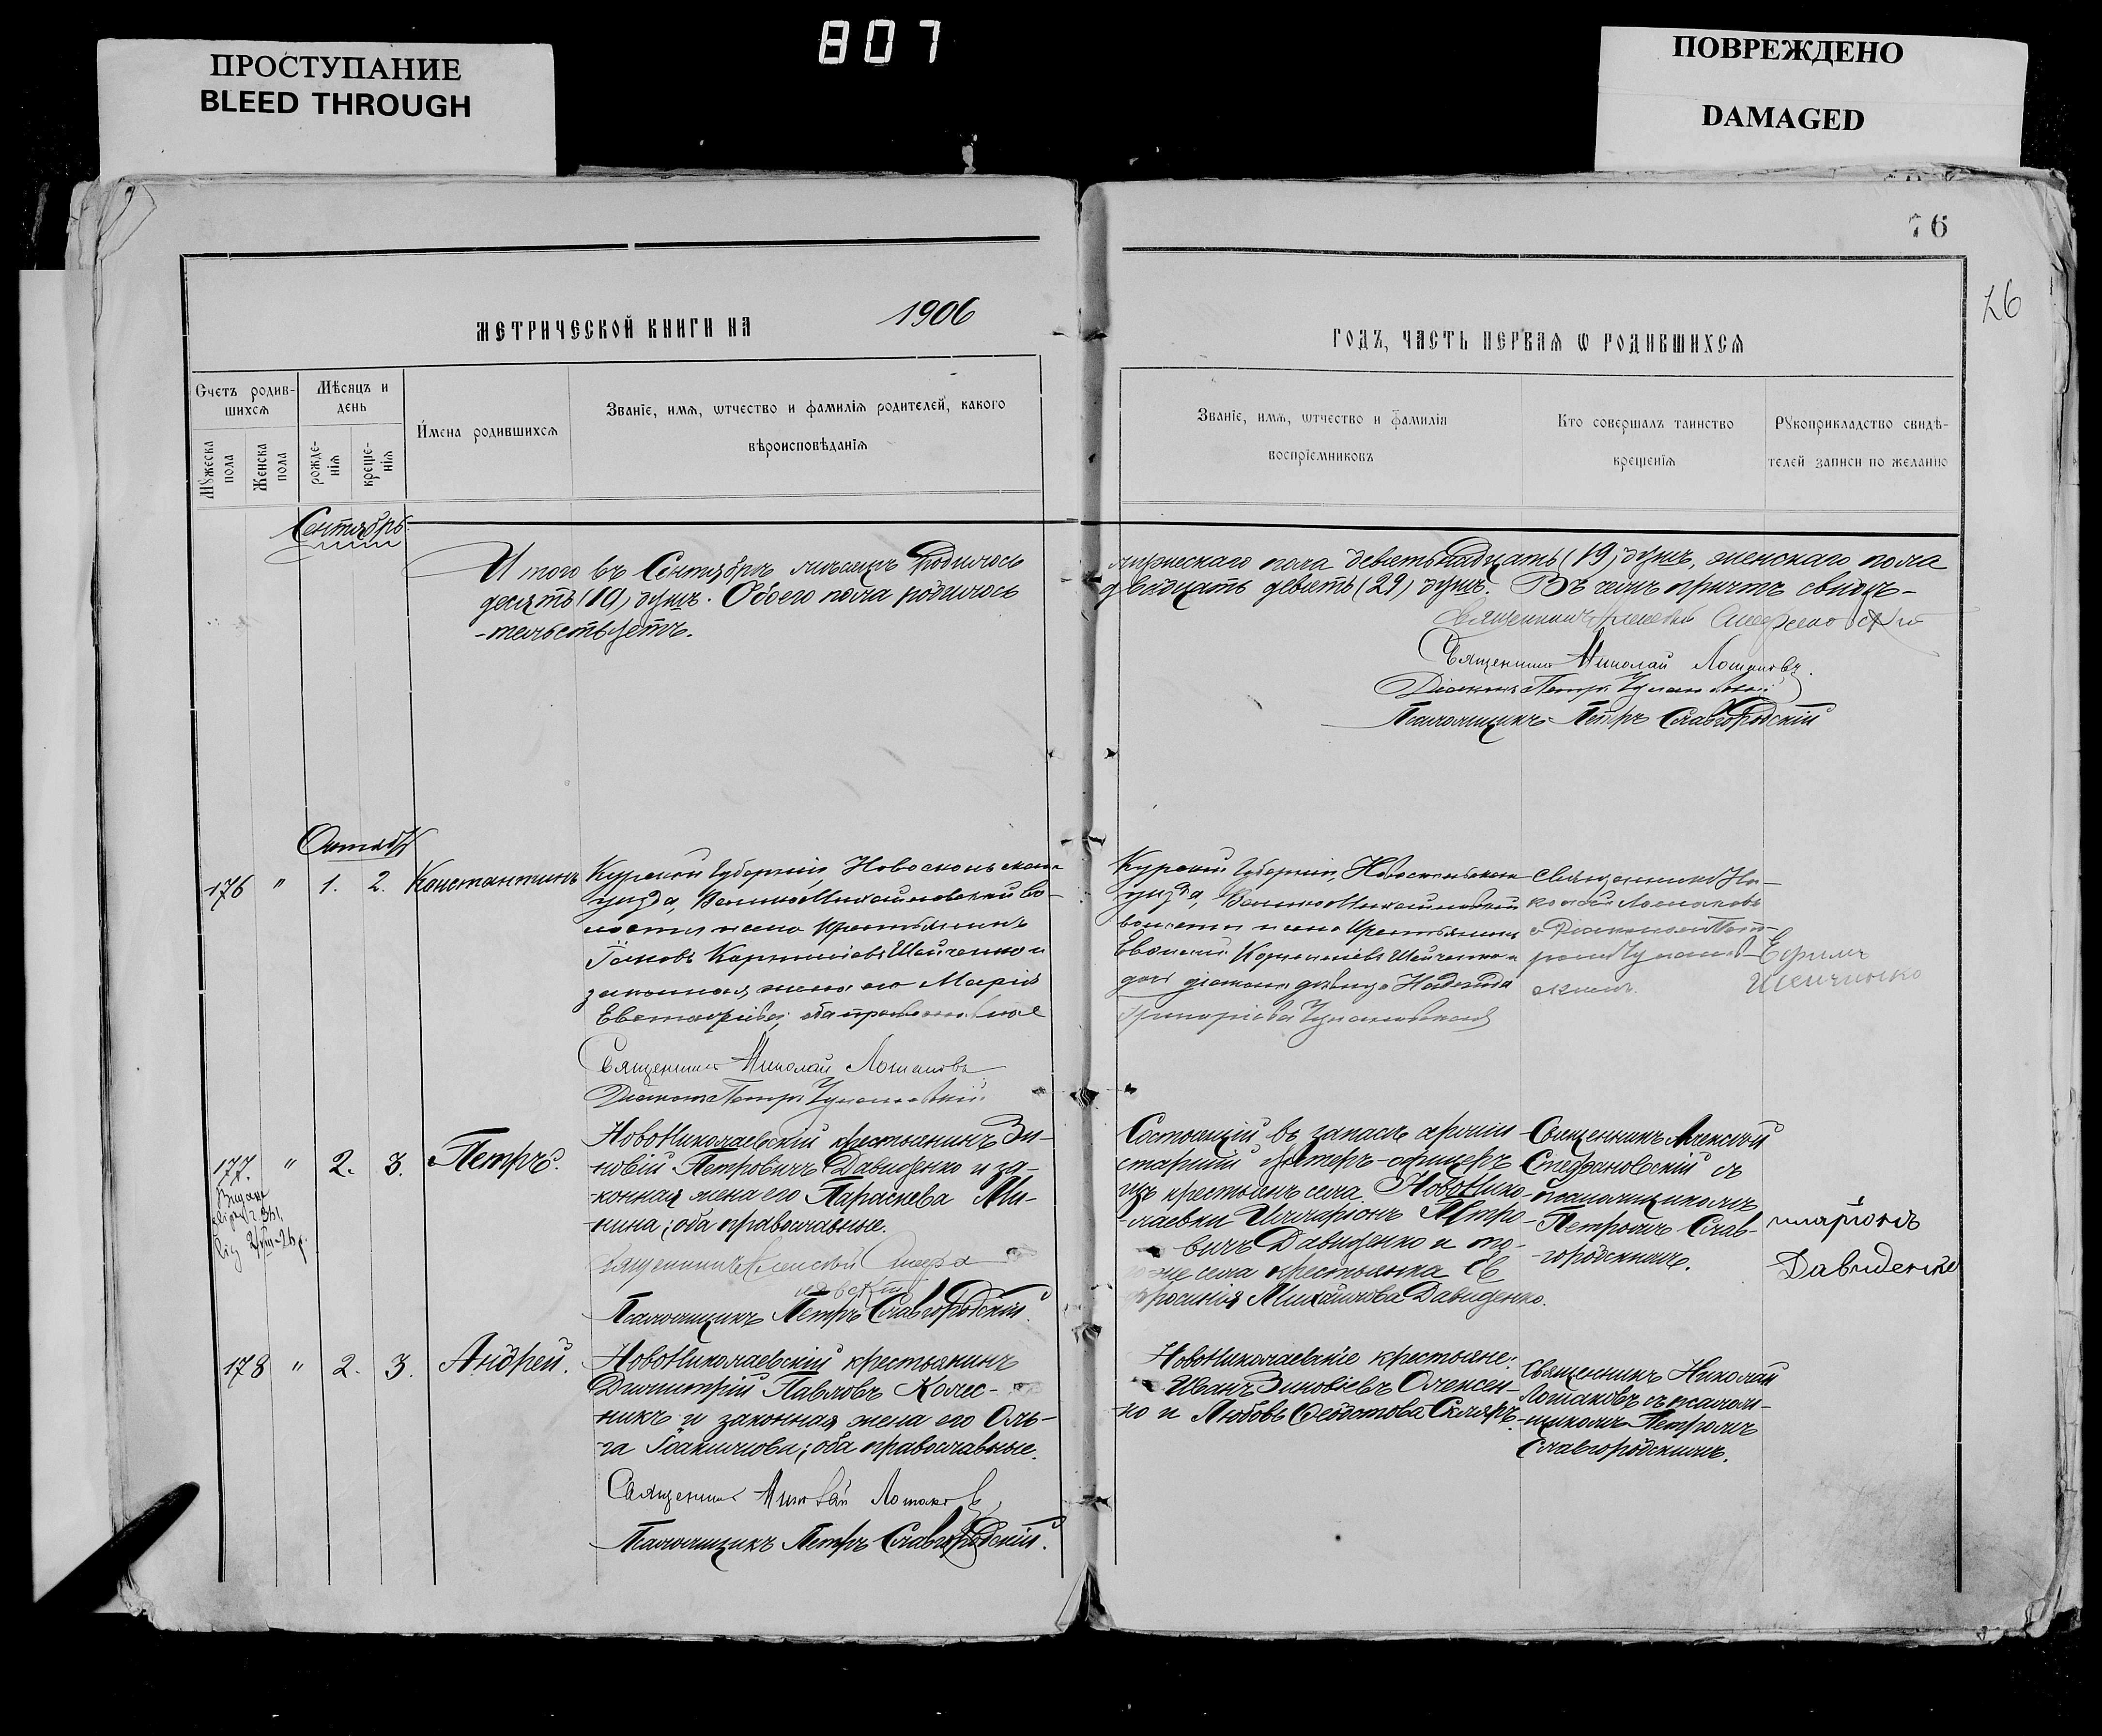 ПРОСТУПАНИЕ
BLEED THROUGH
807
ПОВРЕЖДЕНО
DAMAGED
76
26
МЕТРИЧЕСКОЙ КНИГИ НА 1906
ГОДЪ, ЧАСТЬ ПЕРВАѦ Ѡ РОДИВШИХСѦ
Счетъ родив-
шихсѧ
Мѣсяцъ и
день
Мꙋжеска
пола
Женска
пола
рожде-
нїѧ
креще-
нїѧ
Имена родившихсѧ
Званїе, имѧ, ѿчество и фамилїѧ родителей, какого
вѣроисповѣданїѧ
Званїе, имѧ, ѿчество и фамилїѧ
воспрїемниковъ
Кто совершалъ таинство
крещенїѧ
Рꙋкоприкладство свидѣ-
телей записи по желанїю
Сентябрь
Итого въ Сентябрѣ мѣсяцѣ родилось
десять (10) душъ. Обоего пола родилось
-тельствуетъ.
мужескаго пола девятьнадцать (19) душъ, женскаго пола
двадцать девять (29) душъ. Въ семъ причтъ свидѣ-
Священникъ Алексѣй
Священникъ Николай Лошаковъ.
Діаконъ Петръ
Псаломщикъ Петръ Славгородскій
Октябрь
176 " 1. 2. Константинъ
Курской губерніи, Новооскольскаго
уѣзда, Велико-Михайловской во-
лости и села крестьянинъ
Іаковъ Корниліевъ Шевченко и
законная жена его Марія
Евстафіева, оба православные
Священникъ Николай Лошаковъ
Діаконъ Петръ
Курской губерніи, Новооскольскаго
уѣзда, Велико-Михайловской
волости и села крестьянинъ
Корниліевъ Шевченко и
дочь діакона дѣвица Надежда
Григоріева
Священникъ Ни-
колай Лошаковъ
съ Діакономъ Пет-
ромъ
Ефимъ
Шевченко
177. " 2. 3. Петръ.
НовоНиколаевскій крестьянинъ Зи-
новій Петровичъ Давиденко и за-
конная жена его Параскева Ми-
нина; оба православные.
Священникъ Алексѣй Стефа
новскій
Псаломщикъ Петръ Славгородскій.
Состоящій въ запасѣ арміи
старшій унтеръ-офицеръ
изъ крестьянъ села НовоНико-
-лаевки Илларіонъ Петро-
вичъ Давиденко и то-
же села крестьянка Ев
фросинія Михайлова Давиденко.
Священникъ Алексѣй
Стефановскій съ
псаломщикомъ
Петромъ Слав-
-городскимъ.
иларіонъ
Давиденко
178 " 2. 3. Андрей.
НовоНиколаевскій крестьянинъ
Димитрій Павловъ Колес-
никъ и законная жена его Оль-
га Іоакимова; оба православные.
Священникъ Николай Лошаковъ
Псаломщикъ Петръ Славгородскій.
НовоНиколаевскіе крестьяне:
Иванъ Зиновіевъ Олексен-
ко и Любовь Ѳеодотова Скляръ.
Священникъ Николай
Лошаковъ съ псалом-
щикомъ Петромъ
Славгородскимъ.